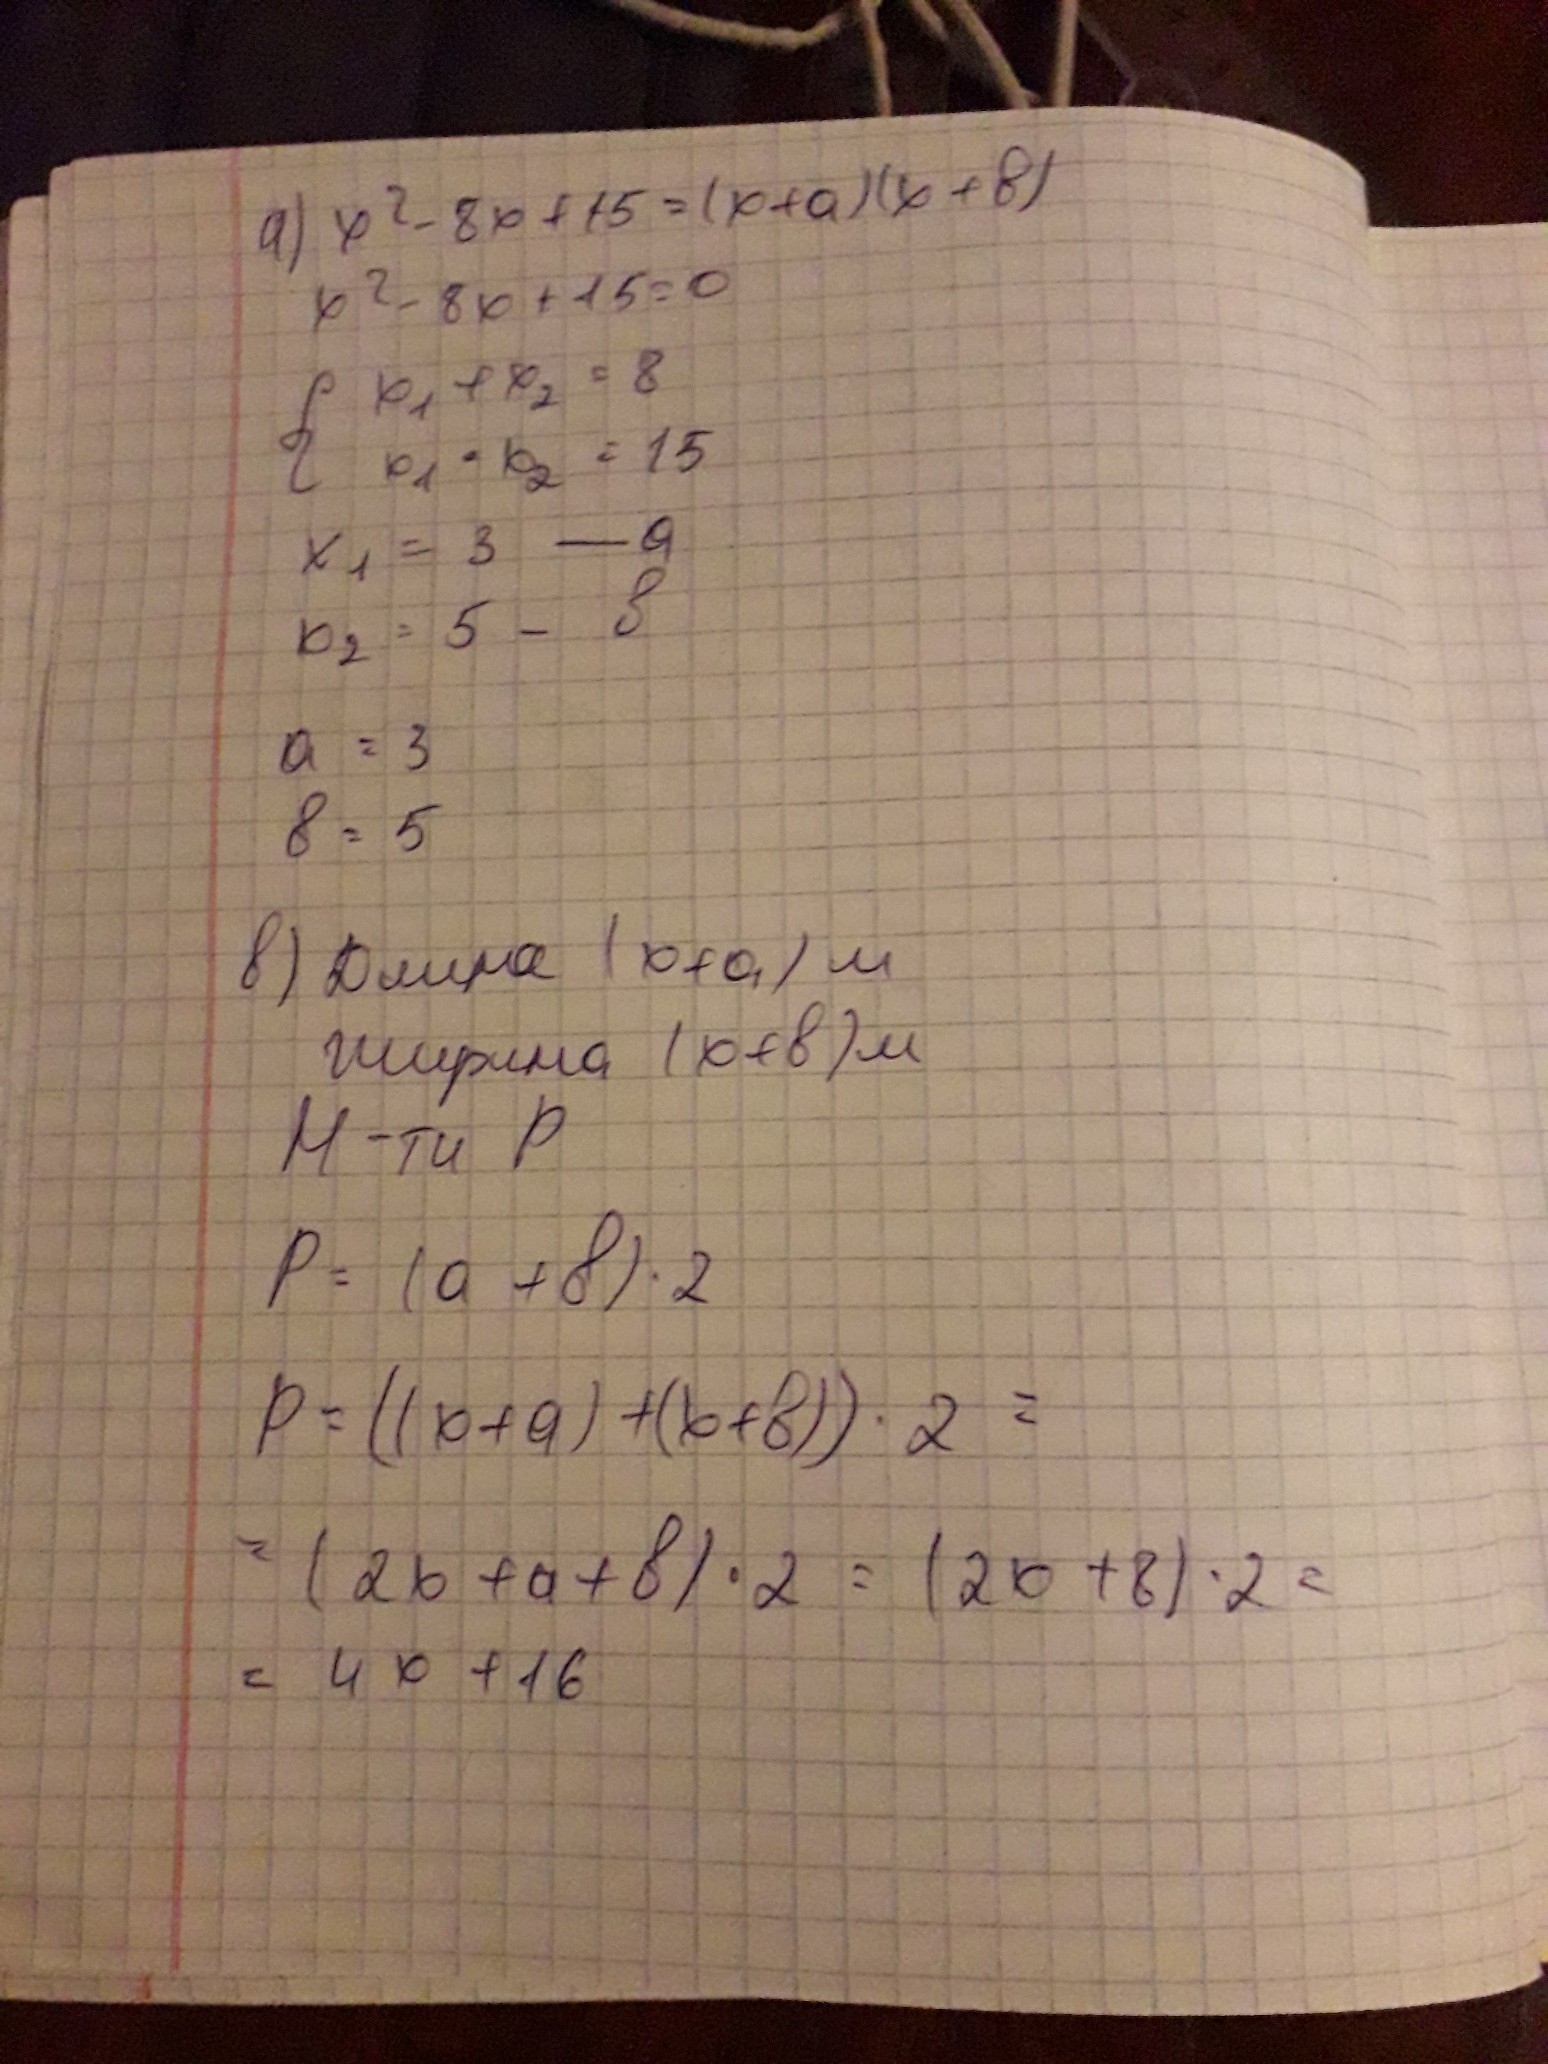 а) x² - 8x + 15 = (x+a)(x+в)
x² - 8x + 15 = 0
{ x₁ + x₂ = 8
x₁ · x₂ = 15
x₁ = 3 — a
x₂ = 5 - в
a = 3
в = 5
в) Длина (x+a) м
ширина (x+в) м
Н-ти P
P = (a + в) · 2
P = ((x+a) + (x+в)) · 2 =
= (2x + a + в) · 2 = (2x + 8) · 2 =
= 4x + 16